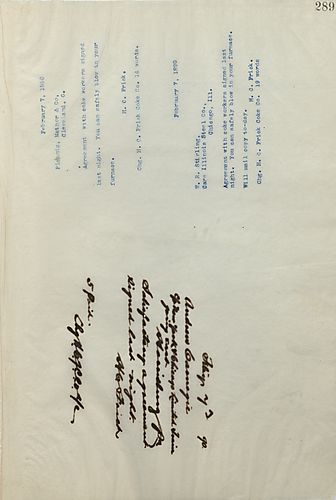 289
February 7, 1890
Pickands, Mather & Co,
Cleveland, O.
Agreement with coke workers signed
last night. You can safely blow in your
furnace.
H. C. Frick.
Chg. H. C. Frick Coke Co. 16 words.
February 7, 1890
W. R. Stirling,
Care Illinois Steel Co.,
Chicago, Ill.
Agreement with coke workers signed last
night. You can safely blow in your furnace.
Will mail copy to-day.
H. C. Frick.
Chg. H. C. Frick Coke Co. 19 words
Feby 7 90
Andrew Carnegie
New York
Satisfactory agreement
signed last night.
H C Frick
5 Paid.